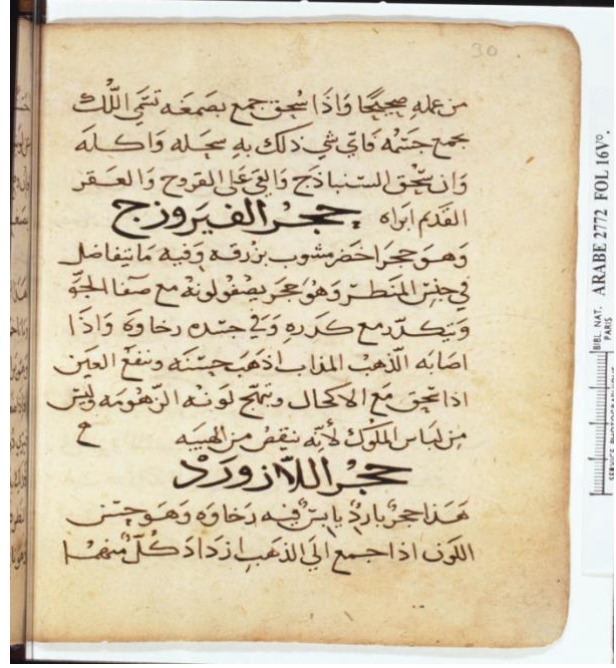 30
من عمله صحيحا واذا سحق جمع بصمغه تسمى اللك
بجمع جسمه فاي شي ذلك به سحله واكله
وان سحق السنباذج والقي على القروح والعقر
القديم ابراه حجر الفيروزج
وهو حجر اخضر مشوب بزرقه وفيه ما يتفاضل
في حسن المنظر وهو حجر يصفو لونه مع صفا الجو
ويتكدر مع كدره وفي جسده رخاوة واذا
اصابه الذهب المذاب اذهب حسنه وينفع العين
اذا سحق مع الاكحال لونه الزهومه وليس
من لباس الملوك لأنه ينقص من الهيبه
حجر اللازورد
هذا حجر بارد يابس فيه رخاوه وهو حسن
اللون اذا جمع الي الذهب ازداد كل منهما
BIBL. NAT. ARABE 2772 FOL 16Vº.
PARIS
SERVICE PHOTOGRAPHIQUE